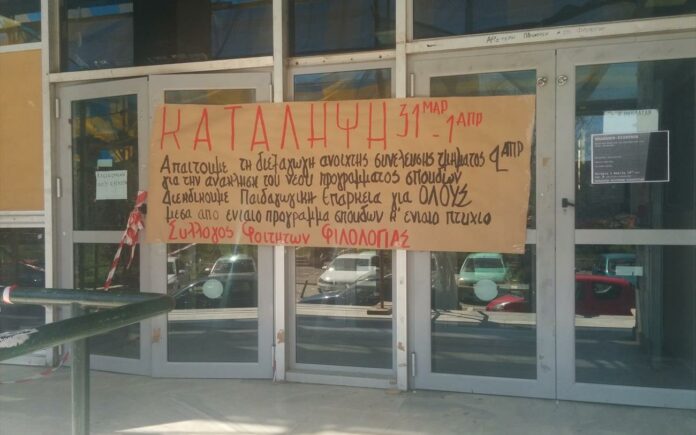 ΚΑΤΑΛΗΨΗ 31 ΜΑΡ - 1 ΑΠΡ
Απαιτουμε τη διεξαγωγη ανοιχτης συνελευσης τμηματος 1 ΑΠΡ
για την ανακληση του νεου προγραμματος σπουδων
Διεκδικουμε Παιδαγωγικη Επαρκεια για ΟΛΟΥΣ
μεσα απο ενιαιο προγραμμα σπουδων κ' ενιαιο πτυχιο
Συλλογος Φοιτητων Φιλολογιας